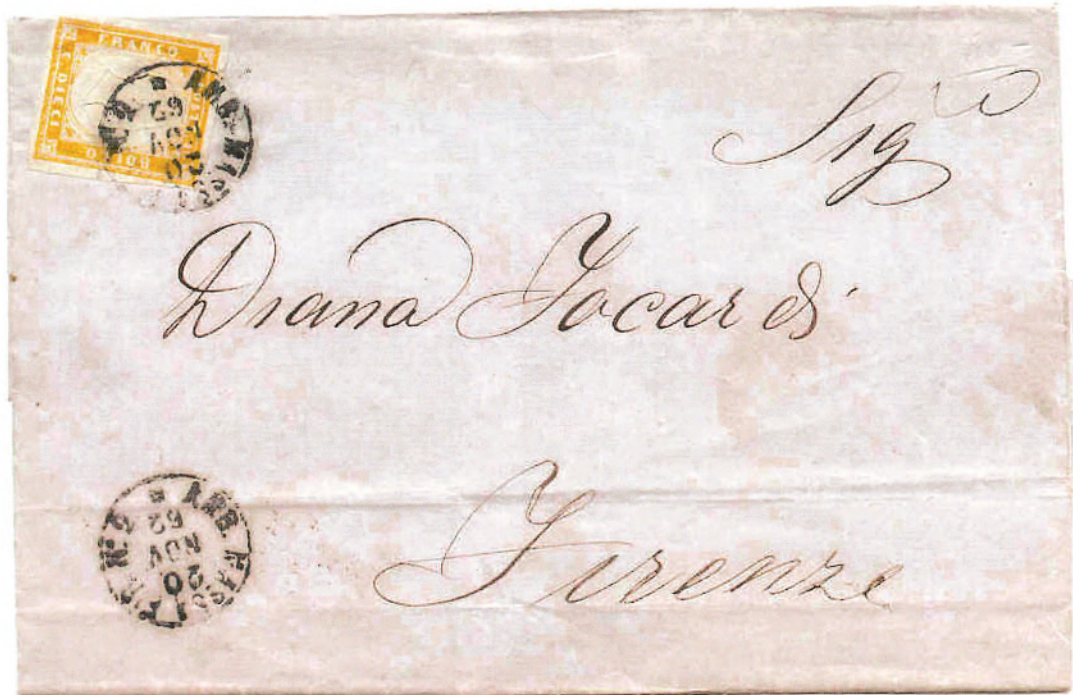 FRANCO
C. DIECI
BOLLO
20
NOV
62
Sig^a
Diana Focardi
Firenze
AMB.
N.º 2
20
NOV
62